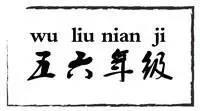 wu liu nian ji
五六年级